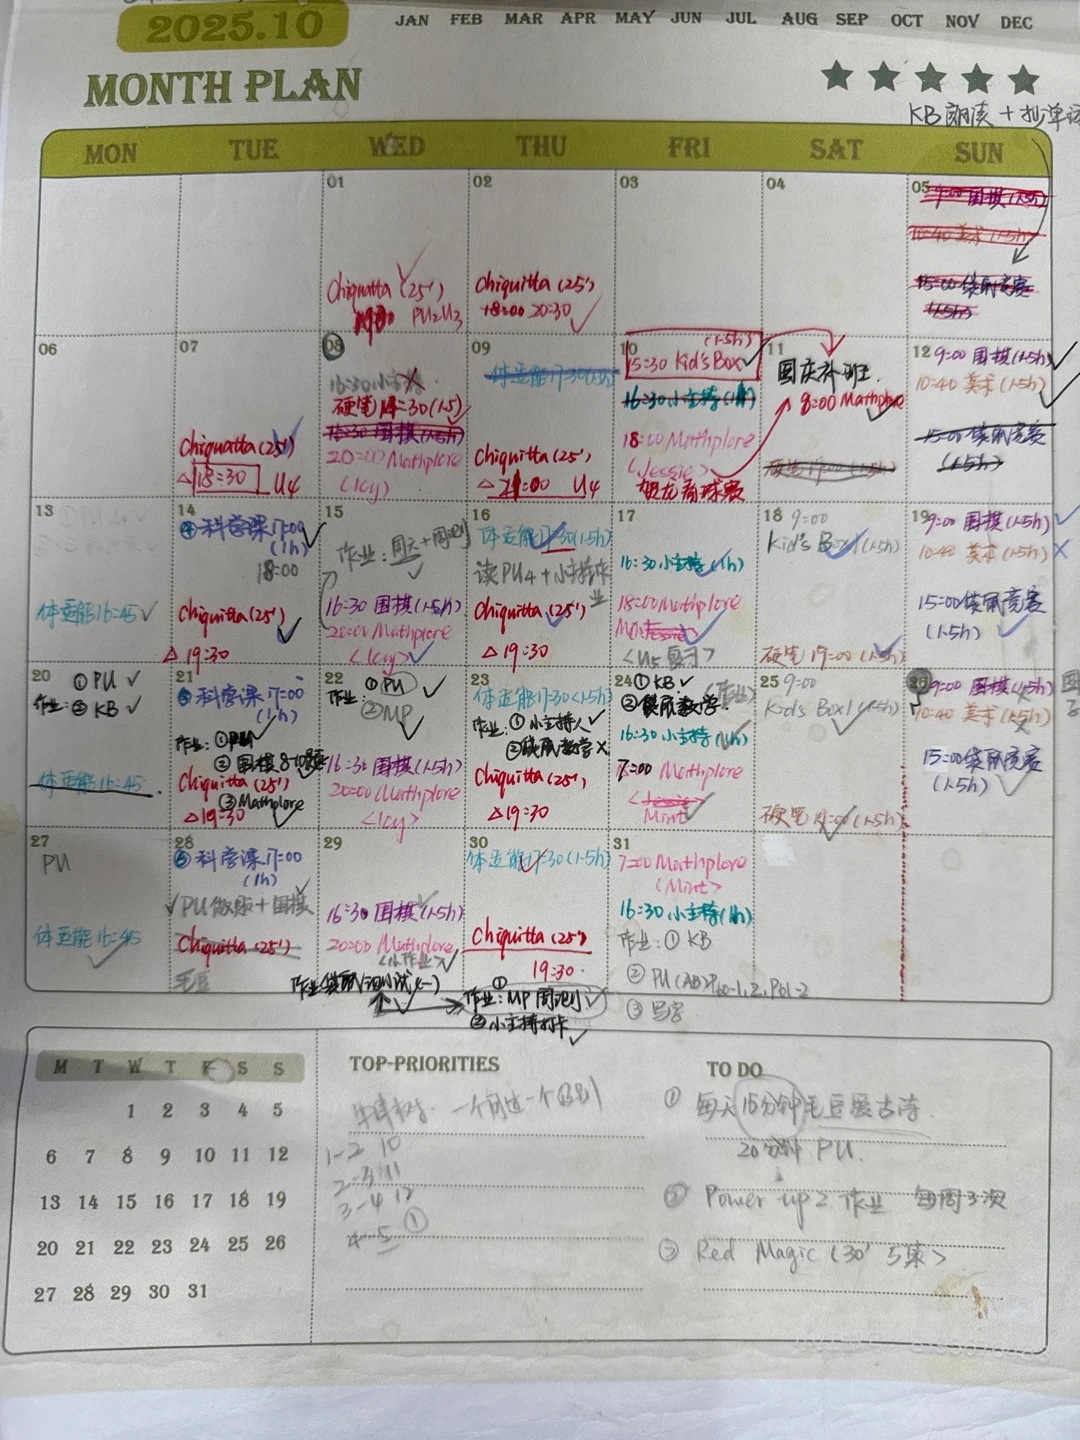 2025.10
JAN FEB MAR APR MAY JUN JUL AUG SEP OCT NOV DEC
MONTH PLAN
KB 朗读 + 抄单词
MON TUE WED THU FRI SAT SUN
01
Chiquatta (25')
PU2U3
02
Chiquitta (25')
18:00 20:30
03
04
05
9:00 围棋 (1.5h)
10:40 美术 (1.5h)
15:00 袋鼠竞赛
(1.5h)
06
07
Chiquatta (25')
△ 18:30 U4
08
16:30 小主持
硬笔 14:30 (1.5)
16:30 围棋 (1.5h)
20:00 Mathplore
(Icy)
09
体适能 17:30 (1.5h)
Chiquitta (25')
△ 21:00 U4
10
(1.5h)
15:30 Kid's Box
16:30 小主持 (1h)
18:00 Mathplore
<Jessie>
看球赛
11
国庆补班.
8:00 Mathplore
硬笔 19:00 (1.5h)
12
9:00 围棋 (1.5h)
10:40 美术 (1.5h)
15:00 袋鼠竞赛
(1.5h)
13
体适能 16:45
14
④ 科学课 17:00
(1h)
18:00
Chiquitta (25')
△ 19:30
15
作业: 周六+周测
16:30 围棋 (1.5h)
20:00 Mathplore
<Icy>
16
体适能 17:30 (1.5h)
读PU4 + 小主持作
业
Chiquitta (25')
△ 19:30
17
16:30 小主持 (1h)
18:00 Mathplore
<U5 复习>
18
9:00
Kid's Box1 (1.5h)
硬笔 19:00 (1.5h)
19
9:00 围棋 (1.5h)
10:40 美术 (1.5h)
15:00 袋鼠竞赛
(1.5h)
20
① PU
作业: ② KB
体适能 16:45
21
⑤ 科学课 17:00
(1h)
作业: ① PU
② 围棋 8-10题
Chiquitta (25')
③ Mathplore
△ 19:30
22
作业: ① PU
② MP
16:30 围棋 (1.5h)
20:00 Mathplore
<Icy>
23
体适能 17:30 (1.5h)
作业: ① 小主持人
② 袋鼠数学 X
Chiquitta (25')
△ 19:30
24
① KB
② 袋鼠数学 (作业)
16:30 小主持 (1h)
7:00 Mathplore
Mint
25
9:00
Kid's Box1 (1.5h)
硬笔 19:00 (1.5h)
26
9:00 围棋 (1.5h)
10:40 美术 (1.5h)
15:00 袋鼠竞赛
(1.5h)
27
PU
体适能 16:45
28
⑥ 科学课 17:00
(1h)
PU做题 + 围棋
Chiquitta (25')
毛豆
29
16:30 围棋 (1.5h)
20:00 Mathplore
<小作业>
作业: 袋鼠测试(一)
30
体适能 17:30 (1.5h)
Chiquitta (25')
19:30
①
作业: MP 周测
② 小主持打卡
31
7:00 Mathplore
<Mint>
16:30 小主持 (1h)
作业: ① KB
② PU (AB) P60-1, 2, P61-2
③ 写字
M T W T F S S
1 2 3 4 5
6 7 8 9 10 11 12
13 14 15 16 17 18 19
20 21 22 23 24 25 26
27 28 29 30 31
TOP-PRIORITIES
牛津树. 一个月过一个级别
1-2 10
2-3 11
3-4 12
4-5 ①
TO DO
① 每天15分钟毛豆爱古诗.
20分钟 PU.
② Power up 2 作业 每周3次
③ Red Magic (30' 5集>